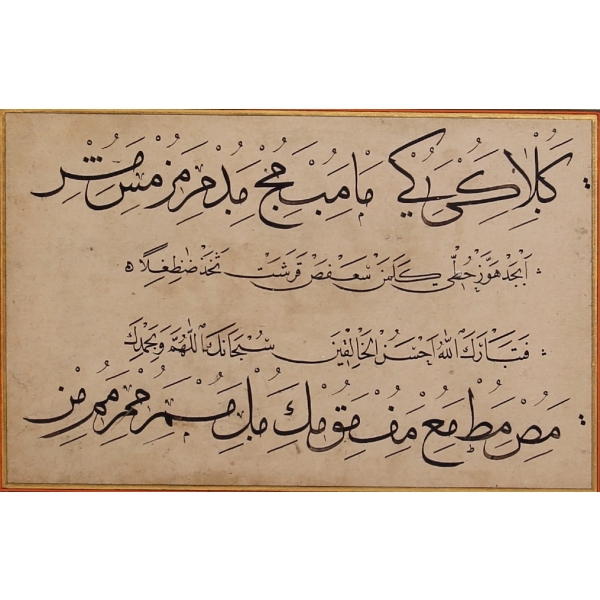 كبلا كى كي ما مب مج مد مر مز مس مش
ابجد هوز حطي كلمن سعفص قرشت ثخذ ضظغلا ه
فتبارك الله احسن الخالقين سبحانك اللهم وبحمدك
مص مط مع مف مق مك مل مم